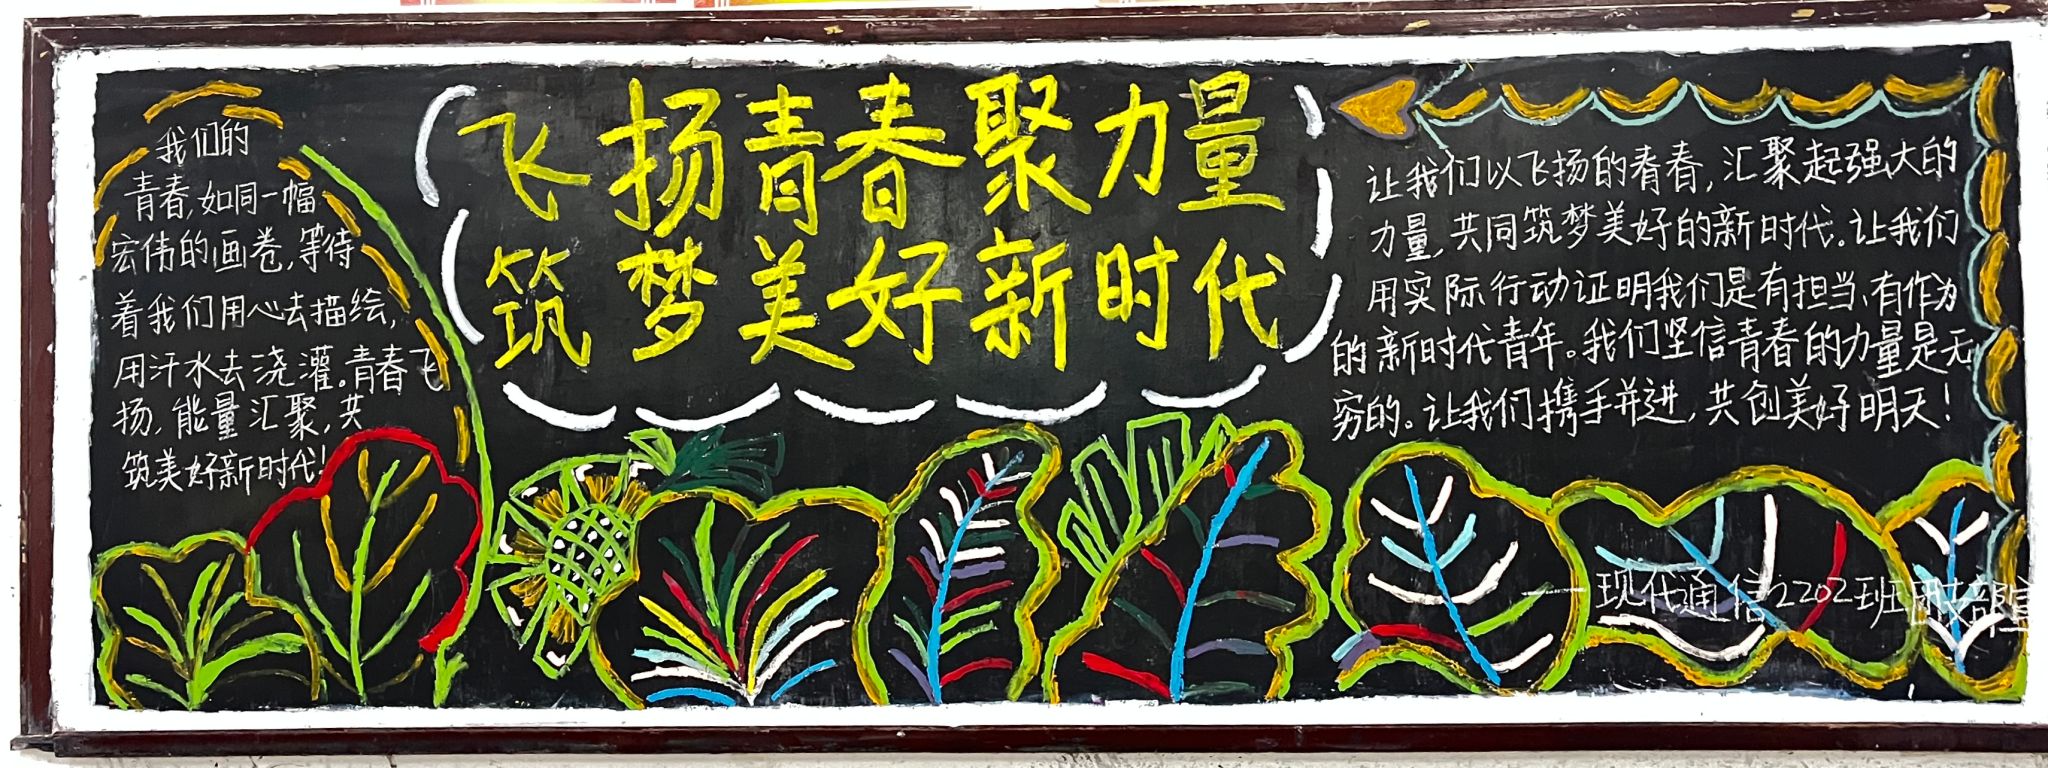 我们的
青春,如同一幅
宏伟的画卷,等待
着我们用心去描绘,
用汗水去浇灌。青春飞
扬,能量汇聚,共
筑美好新时代!
飞扬青春聚力量
筑梦美好新时代
让我们以飞扬的青春,汇聚起强大的
力量,共同筑梦美好的新时代。让我们
用实际行动证明我们是有担当、有作为
的新时代青年。我们坚信青春的力量是无
穷的。让我们携手并进,共创美好明天!
——现代通信2202班团支部宣